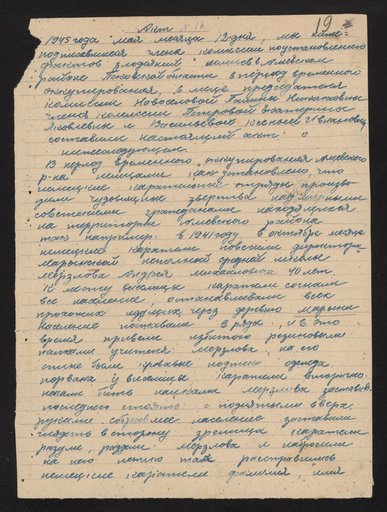 Акт № 16
19
1945 года мая месяца 12 дня, мы ниже-
подписавшиеся члены комиссии по установлению
фактов злодеяний немцев в
районе Псковской области в период временного
оккупирования, в лице председателя
комиссии Новоселовой Галины
членов комиссии Петровой Екатерины
Яковлевны и Васильевой Ксении
составили настоящий акт о
нижеследующем.
В период временного оккупирования
р-на немцами как установлено, что
немецкие карательные отряды произво-
дили чудовищные зверства над мирными
советскими гражданами находящихся
на территории района
так например: в 1941 году в октябре месяце
немецкие каратели повесили директора
неполной средней школы
Мерзлова Андрея Михайловича 40 лет.
К месту виселицы каратели согнали
все население, останавливали всех
прохожих идущих через деревню
население поставили в ряды, и в это
время привели избитого резиновыми
палками учителя Мерзлова, на его
спине были кровавые одежда
порвана у виселицы каратели вторично
начали бить Мерзлова заставив
последнего стоять с поднятыми вверх
руками собранное население заставили
глядеть в сторону зрелища каратели
разули, раздели Мерзлова и набросили
на него петлю так расправились
немецкие каратели фамилия, имя